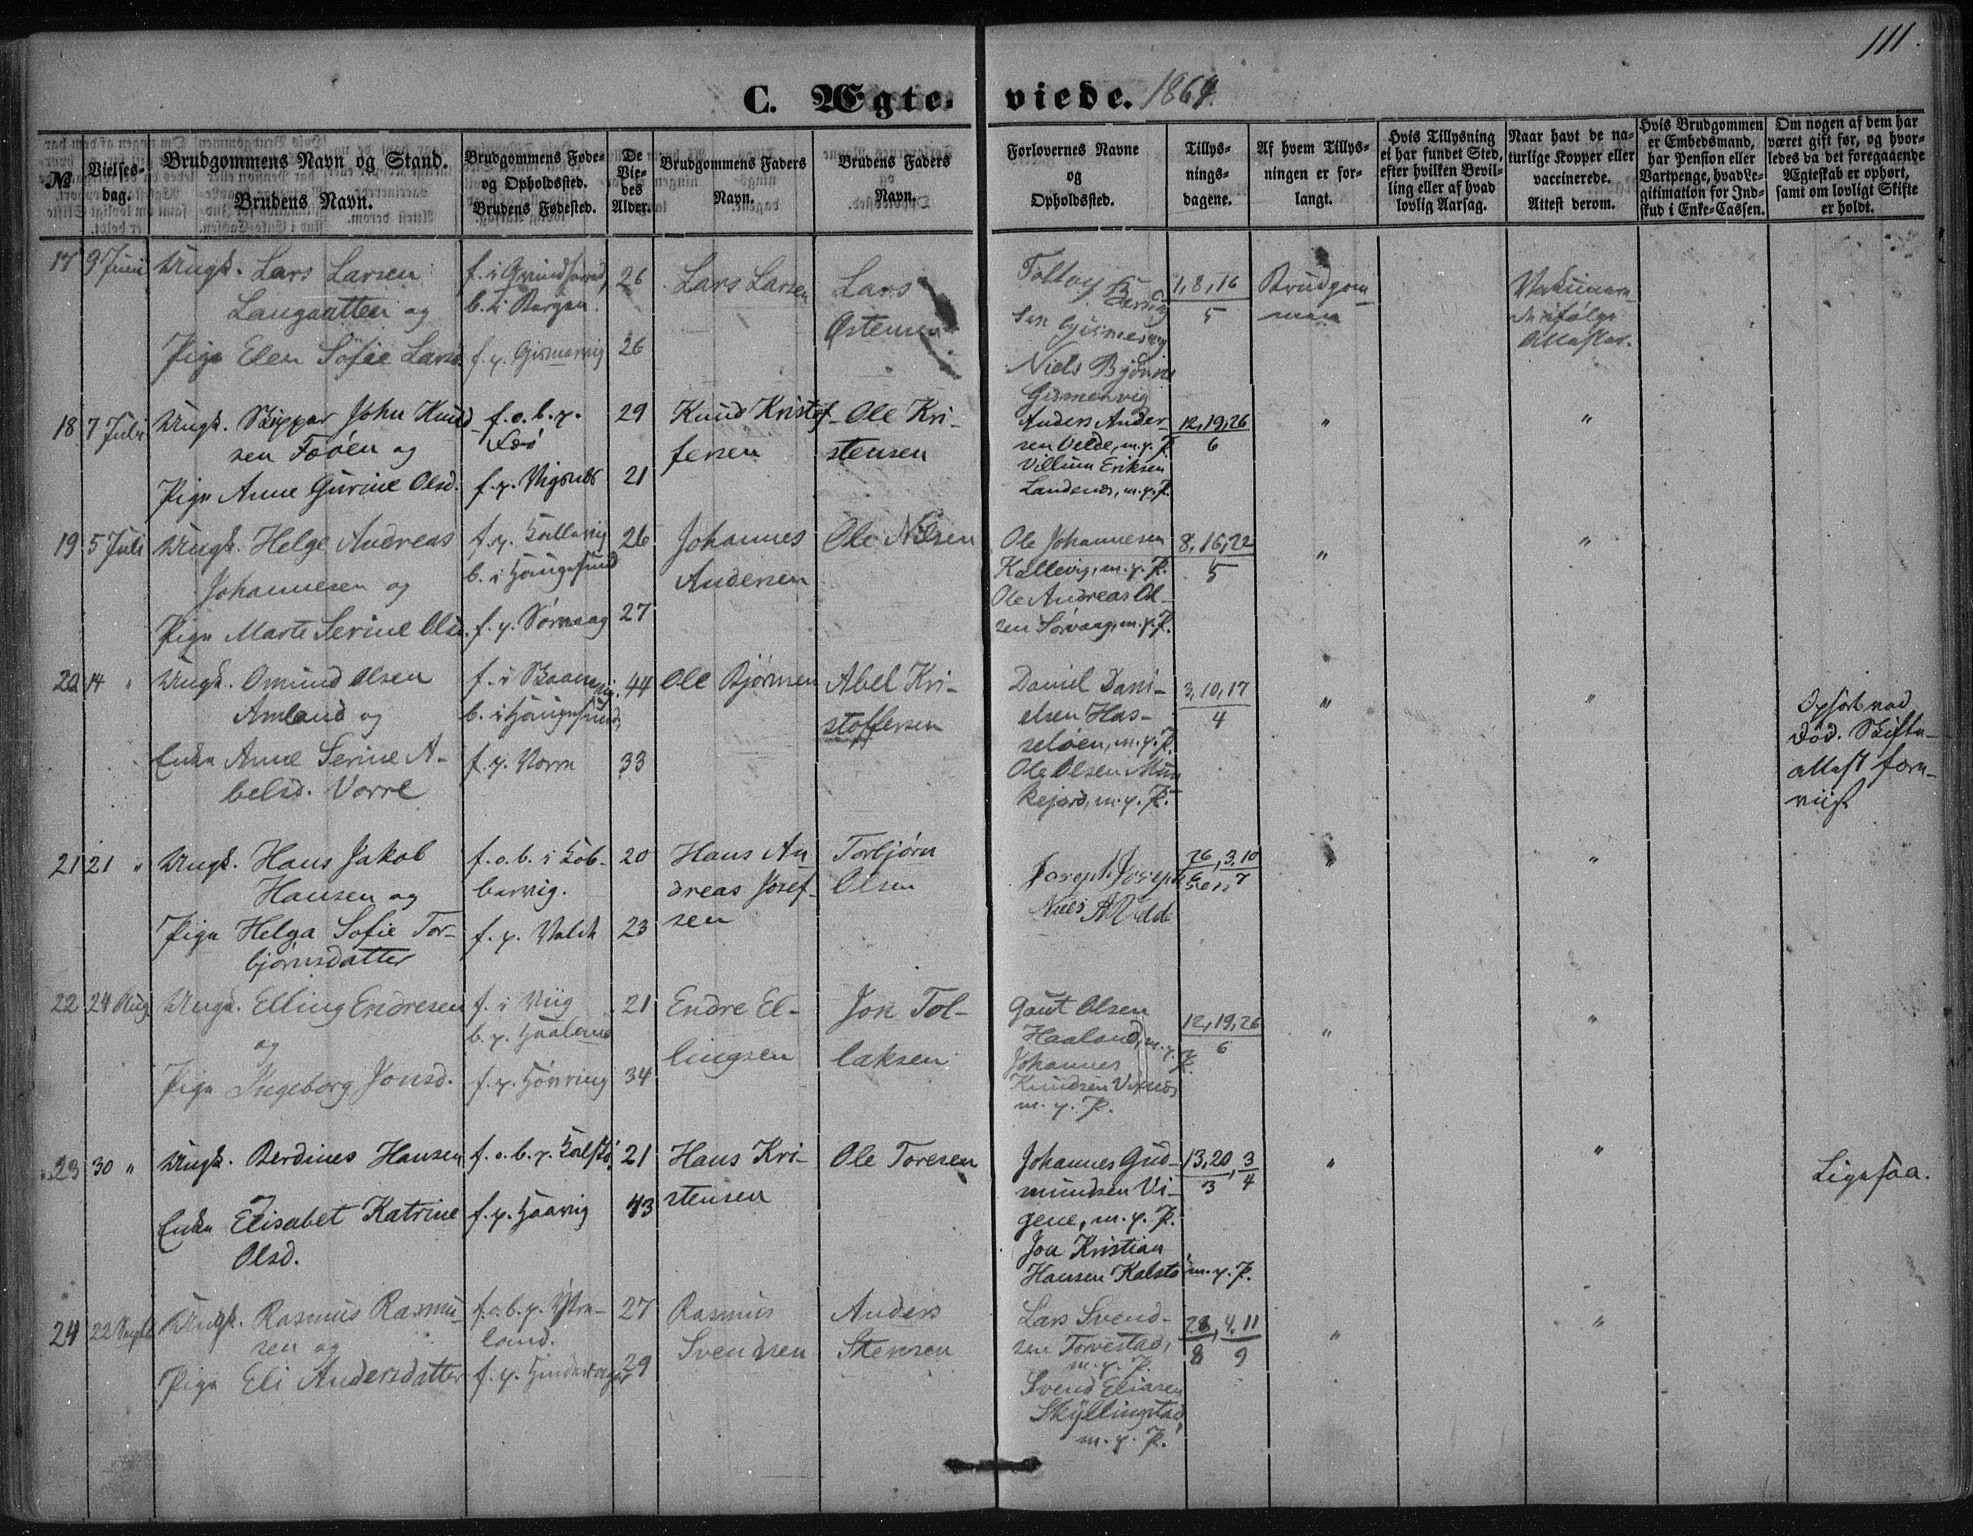 111.
C. Ægteviede. 1864.
№
Vielsesdag.
Brudgommens Navn og Stand.
Brudens Navn.
Brudgommens Føde-
og Opholdssted.
Brudens Fødested.
De
Vie-
des
Alder.
Brudgommens Faders
Navn.
Brudens Faders
Navn.
Forlovernes Navne
og
Opholdssted.
Tillys-
nings-
dagene.
Af hvem Tillys-
ningen er for-
langt.
Hvis Tillysning
ei har fundet Sted,
efter hvilken Bevil-
ling eller af hvad
lovlig Aarsag.
Naar havt de na-
turlige Kopper eller
vaccinerede.
Attest derom.
Hvis Brudgommen
er Embedsmand,
har Pension eller
Vartpenge, hvad Le-
gitimation for Ind-
skud i Enke-Cassen.
Om nogen af dem har
været gift før, og hvor-
ledes da det foregaaende
Ægteskab er ophørt,
samt om lovligt Skifte
er holdt.
17 9 Juni Ungk. Lars Larsen
Langaatten og
Pige Elen Sofie Larsd.
b. i Bergen.
f. p. Gismarvig
26
26
Lars Larsen
Lars
Østensen
Niels Bjørn
Gismervig
1, 8, 16
5
Brudgom-
men
18 7 Juli Ungk. Skipper John Knud
sen Føøen og
Pige Anne Gurine Olsd.
f. o. b. p.
Føø
f. p. Vigsnes
29
21
Knud Kristof
fersen
Ole Kri-
stensen
Anders Ander-
sen Velde, m. p. P.
Villum Eriksen
Landenes, m. p. P.
12, 19, 26
6
" "
19 5 Juli Ungk. Helge Andreas
Johannesen og
Pige Marte Serine Olsd.
f. p. Kallevig
b. i Haugesund
f. p. Sørvaag
26
27
Johannes
Andersen
Ole Nilsen
Ole Johannesen
Kallevig, m. p. P.
Ole Andreas Ol-
sen Sørvaag, m. p. P.
8, 16, 22
5
" "
20 14 " Ungk. Omund Olsen
Amland og
Enke Anne Serine A-
belsd. Vorre
b. i Haugesund,
f. p. Vorre
44
33
Ole Bjørnsen
Abel Kri-
stoffersen
Daniel Dani-
elsen Has-
seløen, m. p. P.
Ole Olsen Mun
kejord, m. p. P.
3, 10, 17
4
" "
Ophørt ved
Død. Skifte-
attest frem-
viist
21 21 " Ungk. Hans Jakob
Hansen og
Pige Helga Sofie Tor-
bjørnsdatter
f. o. b. i Kob-
bervig.
20
23
Hans An
dreas Josef-
sen
Torbjørn
Olsen
Joseph Joseph
sen
26, 3, 10
6 7
" "
22 24 Aug. Ungk. Elling Endresen
og
Pige Ingeborg Jonsd.
f. i Viig
b. p. Haaland
f. p. Høvring
21
34
Endre El-
lingsen
Jon Tol-
laksen
Gaut Olsen
Haaland, m. p. P.
Johannes
Knudsen
m. p. P.
12, 19, 26
6
" "
23 30 " Ungk. Berdines Hansen
og
Enke Elisabet Katrine
Olsd.
f. o. b. p. Kalstø
f. p. Haavig
21
43
Hans Kri-
stensen
Ole Toresen
Johannes Gud-
mundsen Vi-
gene, m. p. P.
Jon Kristian
Hansen Kalstø m. p. P.
13, 20, 3
3 4
" "
Ligesaa.
24 22 Septb Ungk. Rasmus Rasmu-
sen og
Pige Eli Andersdatter
27
29
Rasmus
Svendsen
Anders
Stensen
Lars Svend-
sen Torvestad,
m. p. P.
Svend Eliasen
Skyllingstad
m. p. P.
28, 4, 11
8 9
" "